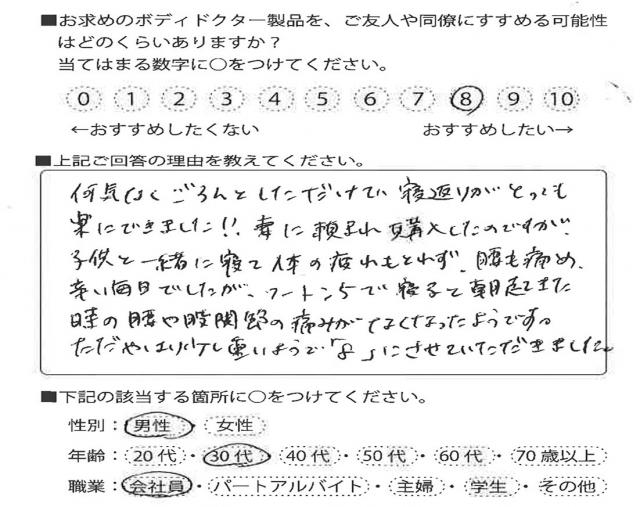 ■お求めのボディドクター製品を、ご友人や同僚にすすめる可能性
はどのくらいありますか？
当てはまる数字に〇をつけてください。
0 1 2 3 4 5 6 7 8 9 10
←おすすめしたくない おすすめしたい→
■上記ご回答の理由を教えてください。
何気なくごろんとしただけでい寝返りがとっても
楽にできました!! 妻に頼まれ購入したのですが、
子供と一緒に寝て体の疲れもとれず、腰も痛め、
辛い毎日でしたが、フートンらで寝ると朝起きた
時の腰や股関節の痛みがなくなったようです。
ただやはり少し重いようで「8」にさせていただきました。
■下記の該当する箇所に〇をつけてください。
性別：男性・女性
年齢：20代・30代・40代・50代・60代・70歳以上
職業：会社員・パートアルバイト・主婦・学生・その他